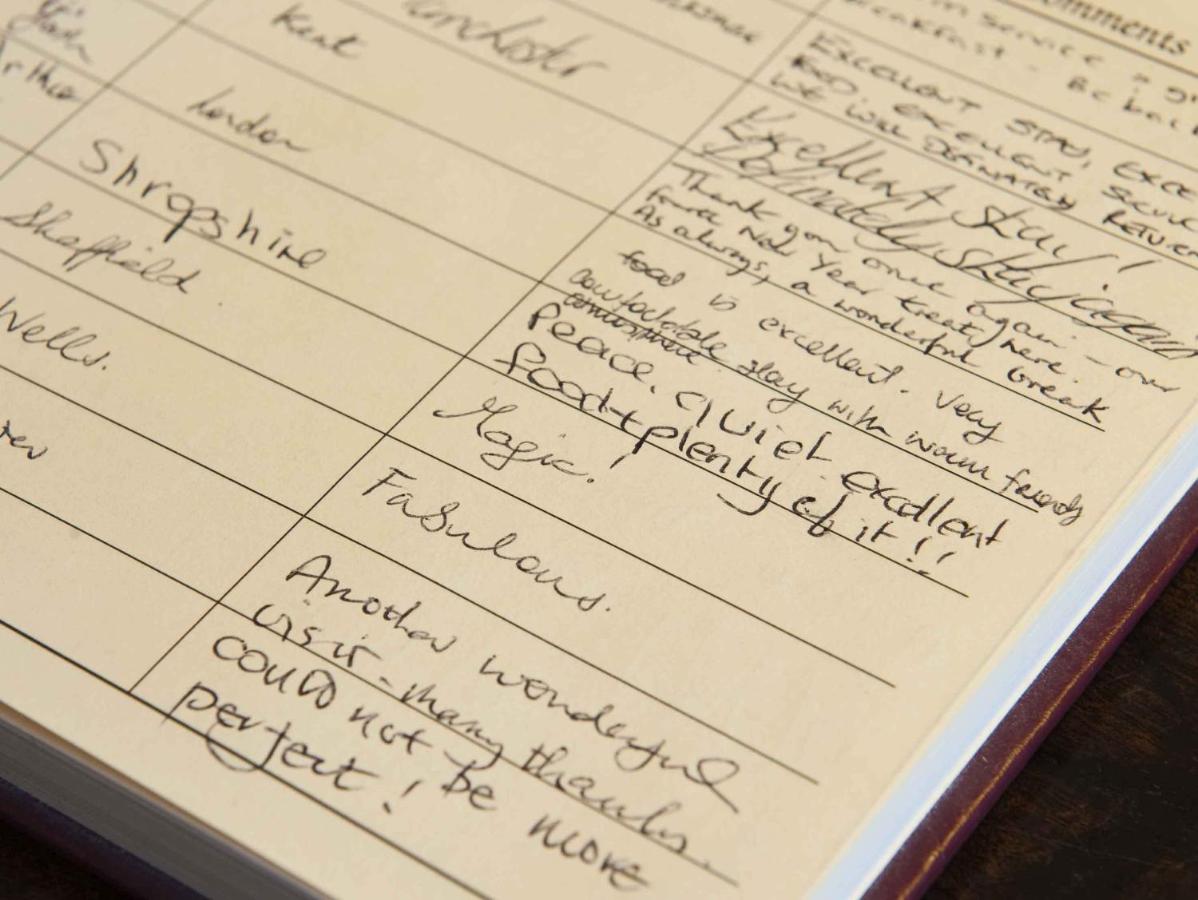 Comments
service
breakfast - Be back
Kent
EXCELLENT STAY, EXCE
FOOD, EXCELLENT SERVICE
WE WILL DEFINATELY RETURN
London
Excellent stay!
Definately stay again
Shropshire
Thank you once again - our
New Year treat, here.
As always, a wonderful break
Sheffield.
food is excellent. very
comfortable stay with warm friends
Wells.
Peace. quiet excellent
food + plenty of it!!
Magic!
Fabulous.
Another wonderful
visit - many thanks.
could not be more
perfect!